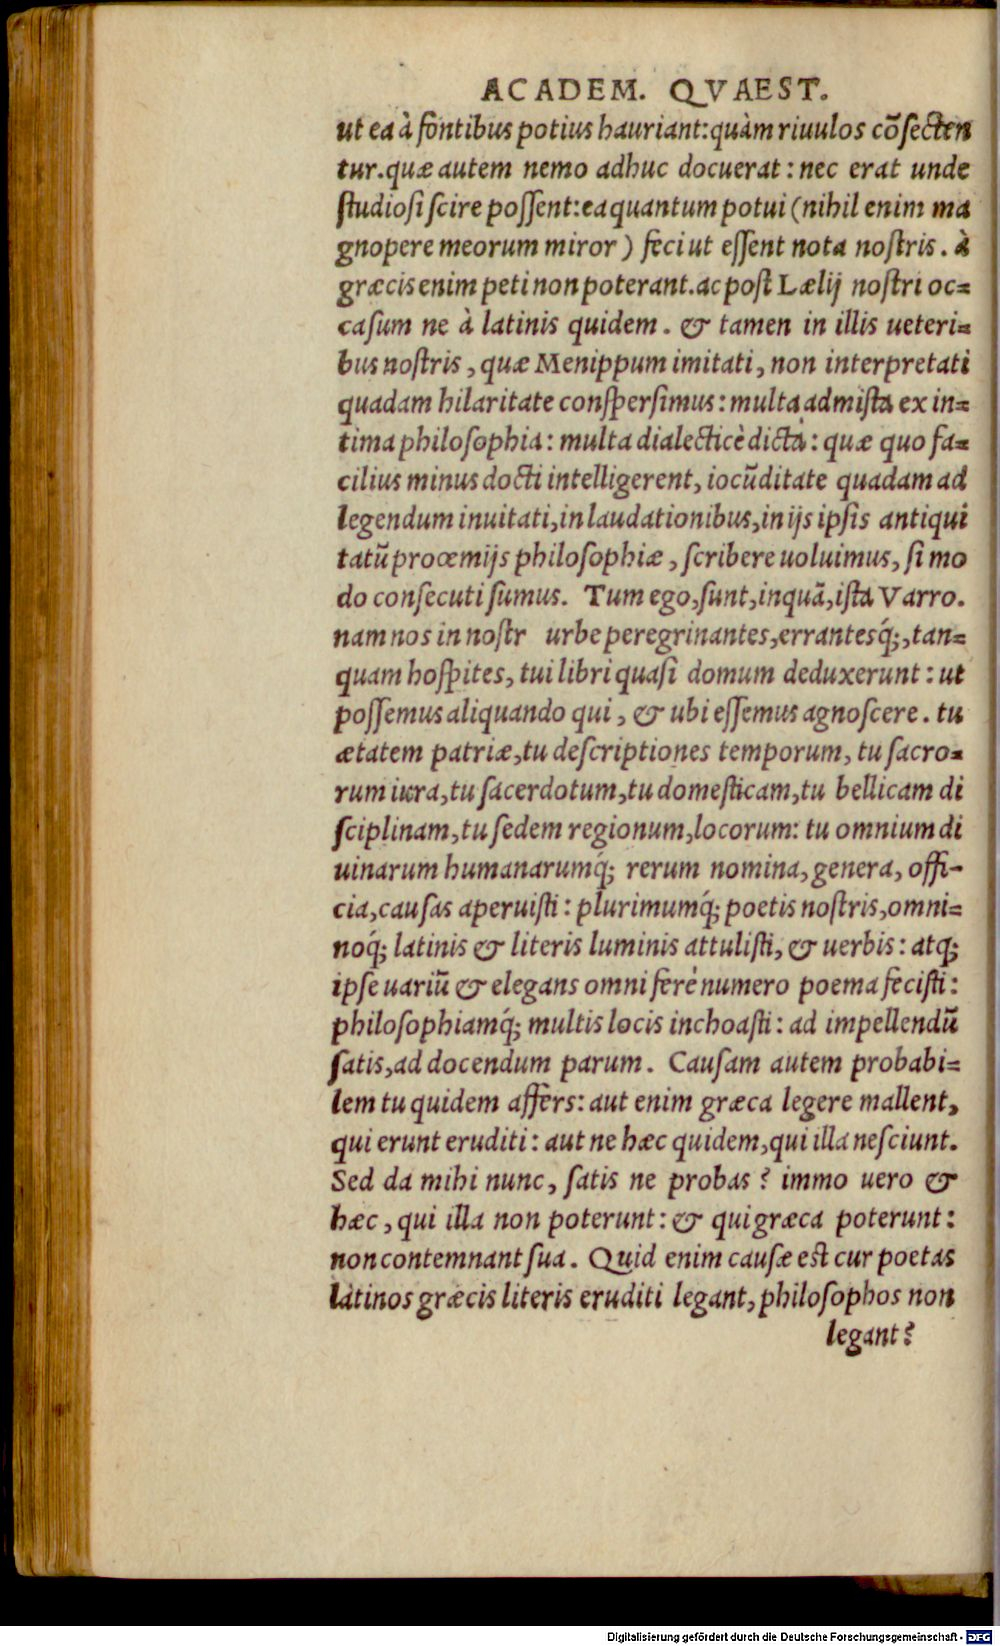 ACADEM. QVAEST.
ut ea à fontibus potius hauriant: quàm riuulos cõsecten
tur. quæ autem nemo adhuc docuerat: nec erat unde
ſtudioſi ſcire poſſent: ea quantum potui (nihil enim ma
gnopere meorum miror) feci ut eſſent nota noſtris. à
græcis enim peti non poterant. ac poſt Lælij noſtri oc=
caſum ne à latinis quidem. & tamen in illis ueteri=
bus noſtris, quæ Menippum imitati, non interpretati
quadam hilaritate conſperſimus: multa admiſta ex in=
tima philoſophia: multa dialecticè dicta: quæ quo fa=
cilius minus docti intelligerent, iocũditate quadam ad
legendum inuitati, in laudationibus, in ijs ipſis antiqui
tatũ proœmijs philoſophiæ, ſcribere uoluimus, ſi mo
do conſecuti ſumus. Tum ego, ſunt, inquã, iſta Varro.
nam nos in noſtr urbe peregrinantes, errantesq́;, tan=
quam hoſpites, tui libri quaſi domum deduxerunt: ut
poſſemus aliquando qui, & ubi eſſemus agnoſcere. tu
ætatem patriæ, tu deſcriptiones temporum, tu ſacro=
rum iura, tu ſacerdotum, tu domeſticam, tu bellicam di
ſciplinam, tu ſedem regionum, locorum: tu omnium di
uinarum humanarumq́; rerum nomina, genera, offi-
cia, cauſas aperuiſti: plurimumq́; poetis noſtris, omni=
noq́; latinis & literis luminis attuliſti, & uerbis: atq;
ipſe uariũ & elegans omni ferè numero poema feciſti:
philoſophiamq́; multis locis inchoaſti: ad impellendũ
ſatis, ad docendum parum. Cauſam autem probabi=
lem tu quidem affers: aut enim græca legere mallent,
qui erunt eruditi: aut ne hæc quidem, qui illa neſciunt.
Sed da mihi nunc, ſatis ne probas? immo uero &
hæc, qui illa non poterunt: & qui græca poterunt:
non contemnant ſua. Quid enim cauſæ eſt cur poetas
latinos græcis literis eruditi legant, philoſophos non
legant?
Digitalisierung gefördert durch die Deutsche Forschungsgemeinschaft - DFG